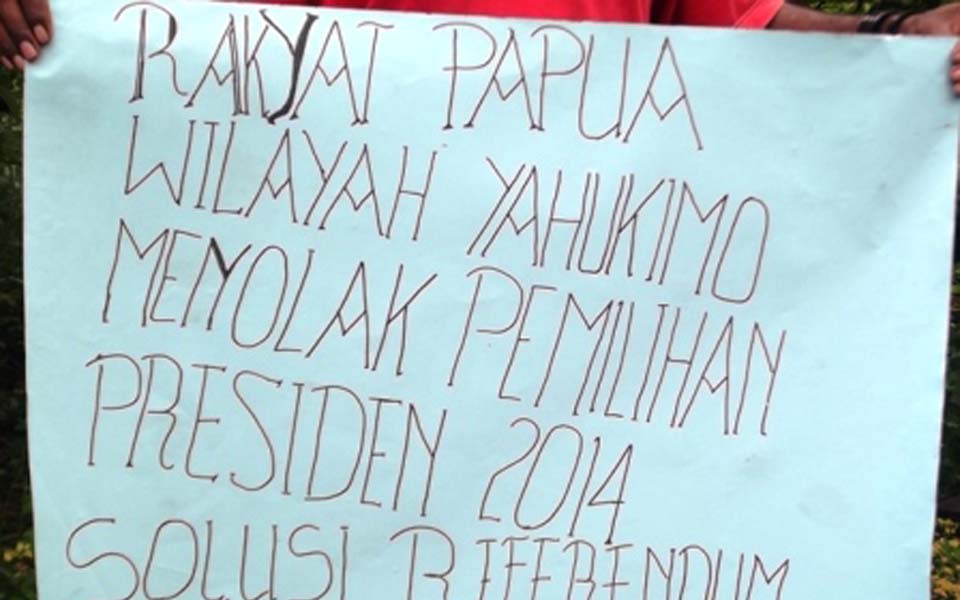 RAKYAT PAPUA
WILAYAH YAHUKIMO
MENYOLAK PEMILIHAN
PRESIDEN 2014
SOLUSI RIFERENDUM